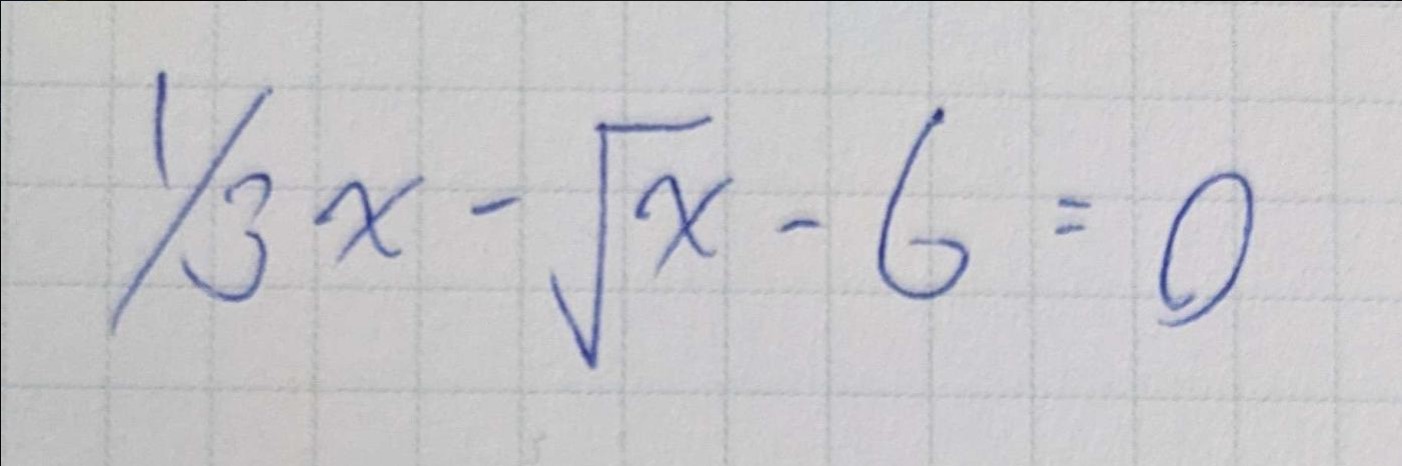 1/3 x - √x - 6 = 0